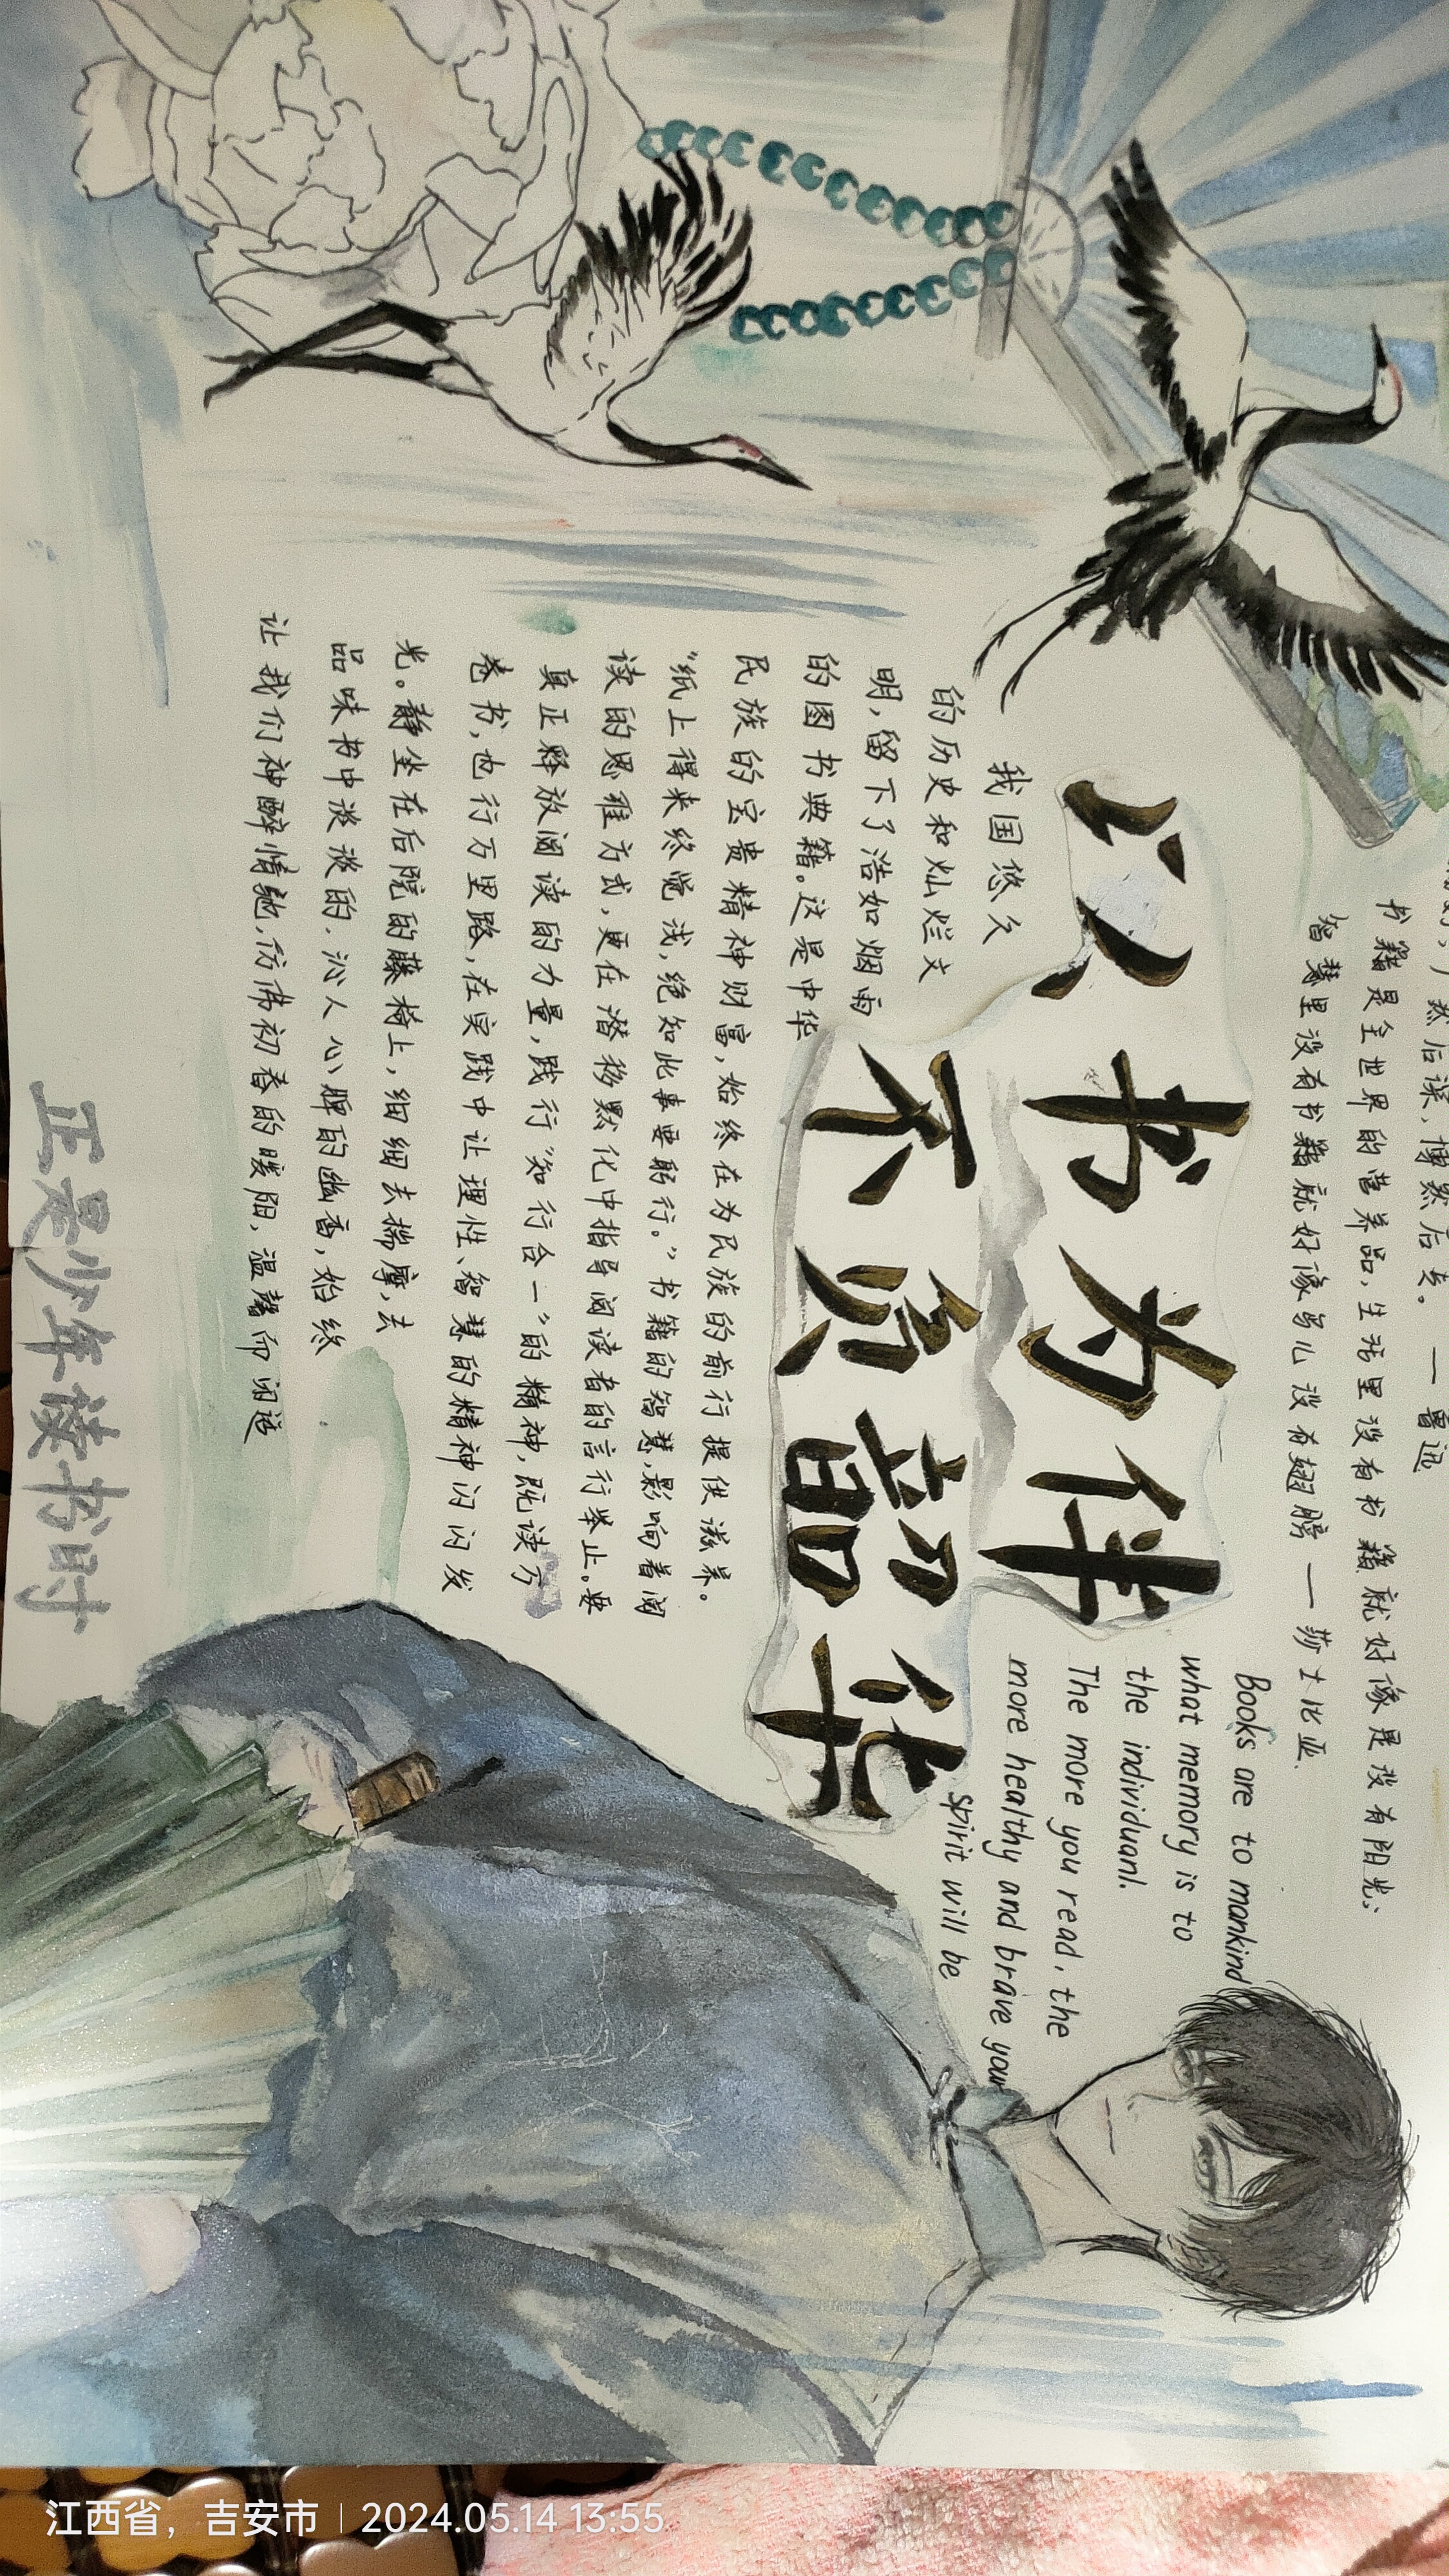 然后深,博然后专。 — 鲁迅
书籍是全世界的营养品,生活里没有书籍就好像是没有阳光;
智慧里没有书籍就好像鸟儿没有翅膀 — 莎士比亚.
以书为伴
不负韶华
Books are to mankind
what memory is to
the individuanl.
The more you read, the
more healthy and brave your
spirit will be
我国悠久
的历史和灿烂文
明,留下了浩如烟雨
的图书典籍。这是中华
民族的宝贵精神财富,始终在为民族的前行提供滋养。
“纸上得来终觉浅,绝知此事要躬行。”书籍的智慧,影响着阅
读的思维方式,更在潜移默化中指导阅读者的言行举止。要
真正释放阅读的力量,践行“知行合一”的精神,既读万
卷书,也行万里路,在实践中让理性、智慧的精神闪闪发
光。静坐在后院的藤椅上,细细去揣摩,去
品味书中淡淡的.沁人心脾的幽香,始终
让我们神醉情驰,仿佛初春的暖阳,温馨而闲适
正是少年读书时
江西省,吉安市 | 2024.05.14 13:55